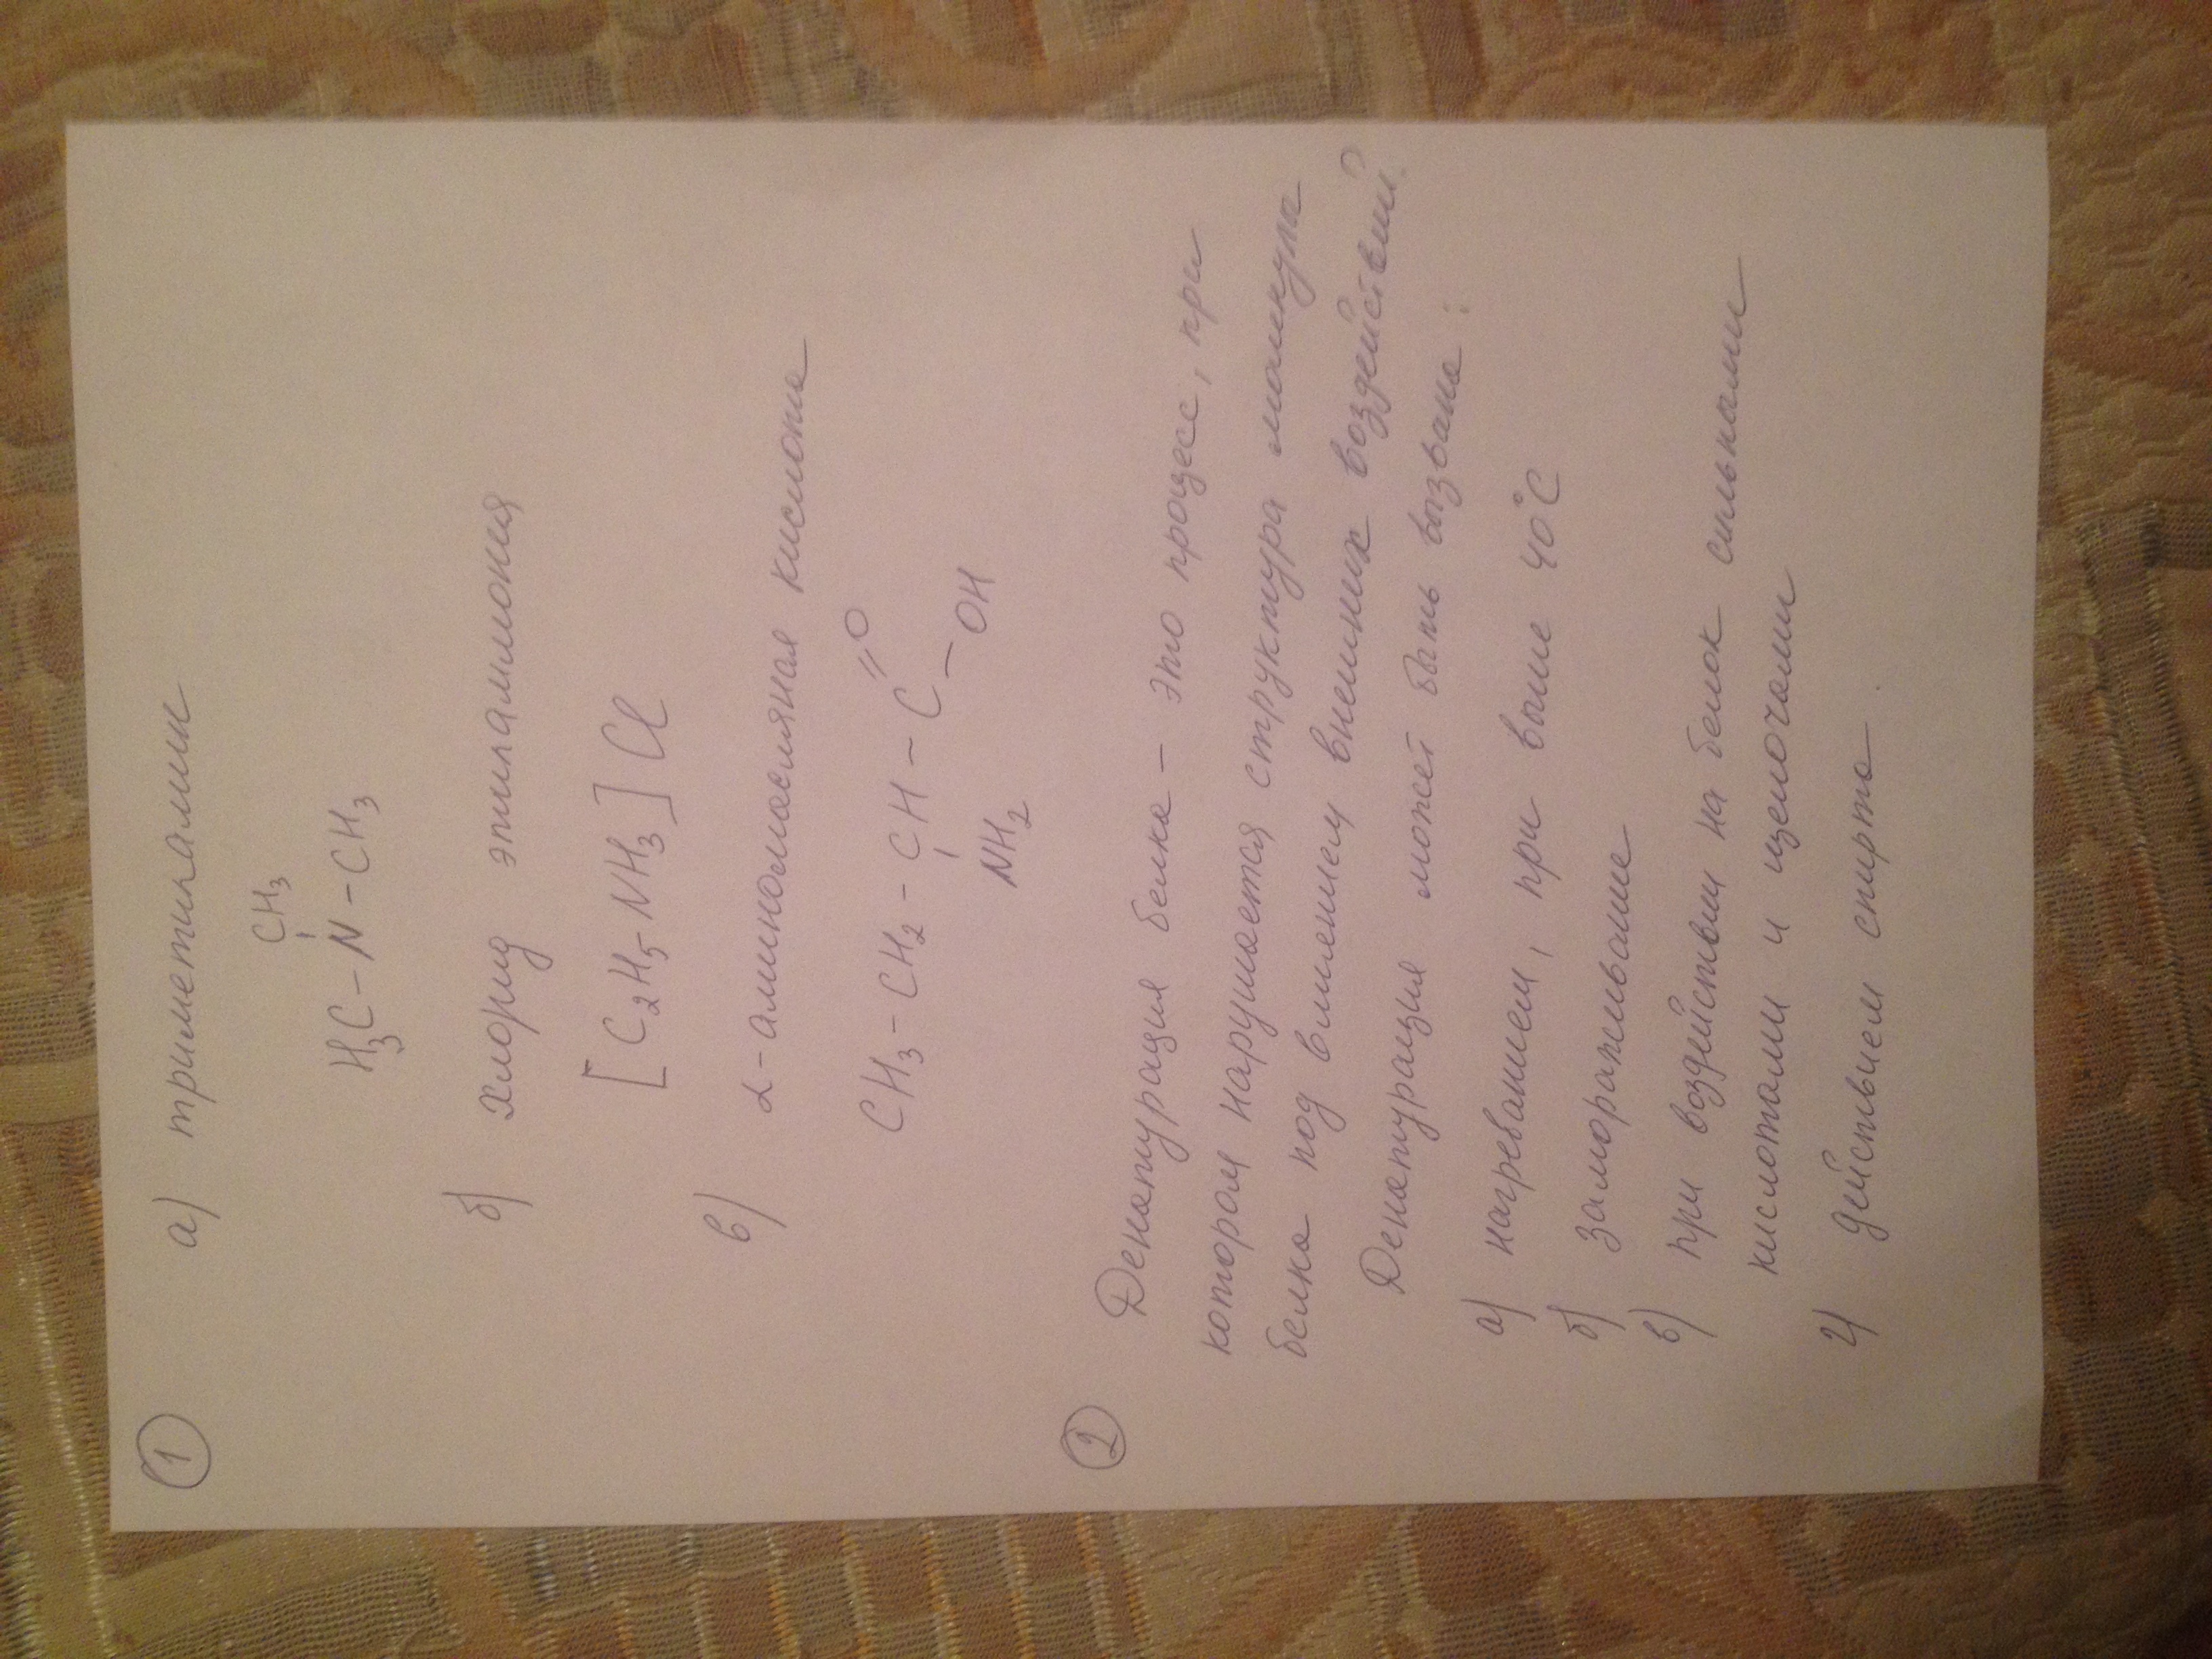 1
а) триметиламин
CH3
H3C – N – CH3
б) Хлорид этиламмония
[C2H5 NH3] Cl
в) α-аминомасляная кислота
CH3 – CH2 – CH – C =O
NH2 – OH
2 Денатурация белка – это процесс, при
котором нарушается структура молекулы
белка под влиянием внешних воздействий.
Денатурация может быть вызвана:
а) нагреванием, при выше 40°C
б) Замораживание
в) при воздействии на белок сильными
кислотами и щелочами
г) действием спирта.